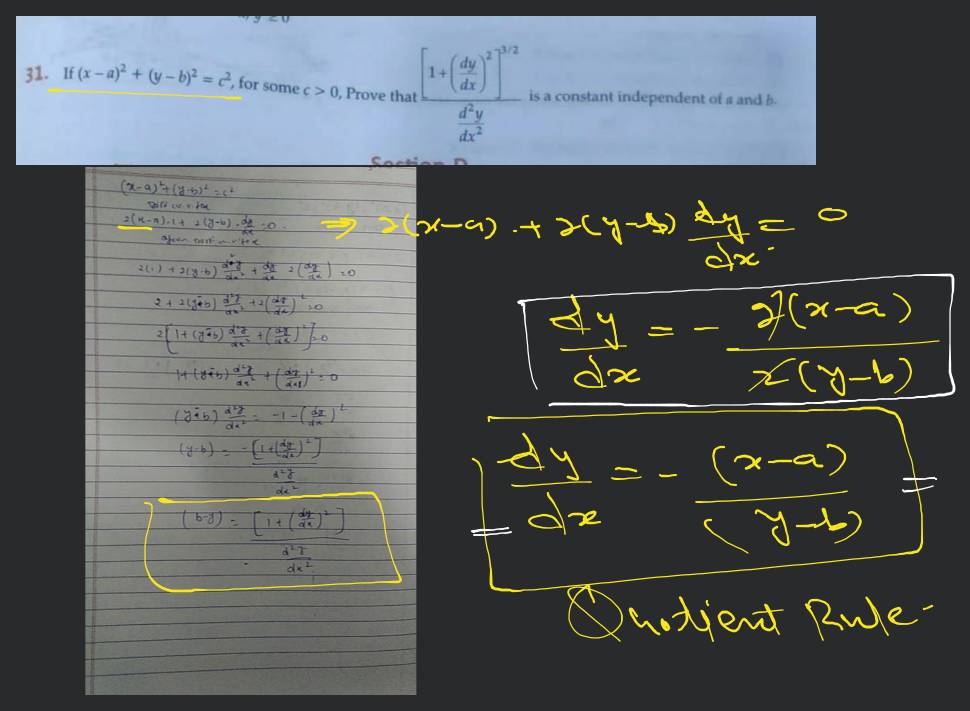 31. If (x – a)² + (y – b)² = c², for some c > 0, Prove that [1 + (dy/dx)²]^3/2 / d²y/dx² is a constant independent of a and b.
(x-a)² + (y-b)² = c²
2(x-a).1 + 2(y-b).dy/dx = 0.
2(1) + 2(y-b) d²y/dx² + dy/dx 2(dy/dx) = 0
2 + 2(y-b) d²y/dx² + 2(dy/dx)² = 0
2[1 + (y-b) d²y/dx² + (dy/dx)²] = 0
1 + (y-b) d²y/dx² + (dy/dx)² = 0
(y-b) d²y/dx² = -1 - (dy/dx)²
(y-b) = -[1 + (dy/dx)²] / d²y/dx²
(b-y) = [1 + (dy/dx)²] / d²y/dx²
⇒ 2(x-a) . + 2(y-b) dy/dx = 0
dy/dx = - 2(x-a) / 2(y-b)
dy/dx = - (x-a) / (y-b)
Quotient Rule